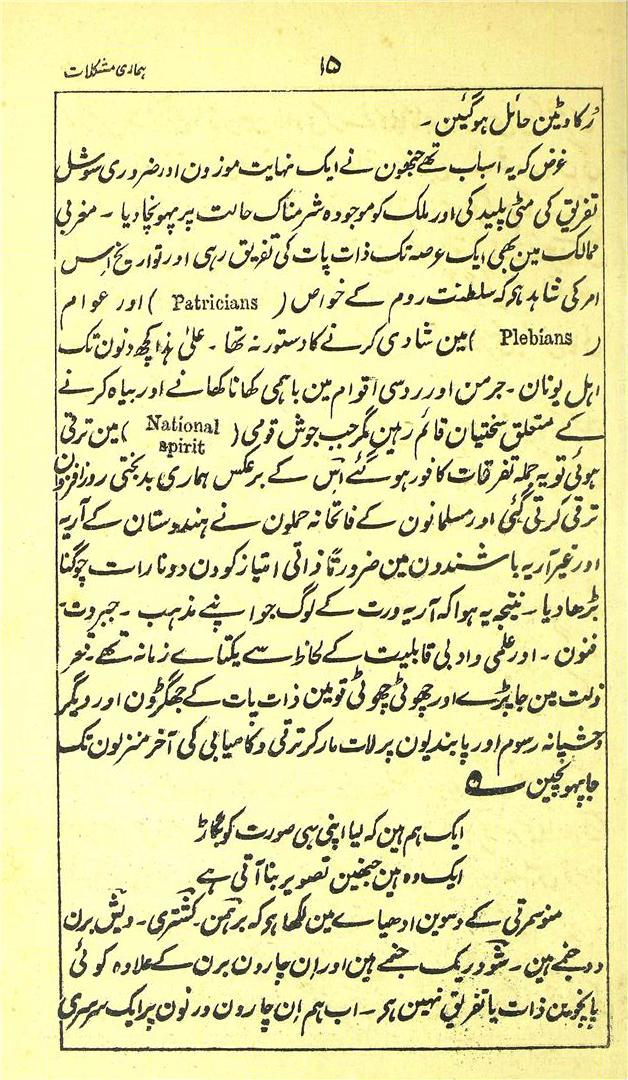 ہماری مشکلات
۱۵
رُکاوٹین حائل ہوگئین ۔
غرض کہ یہ اسباب تھے جنھون نے ایک نہایت موزون اور ضروری سوشل
تفریق کی مٹی پلید کی اور ملک کو موجودہ شرمناک حالت پر پہونچا دیا ۔ مغربی
ممالک مین بھی ایک عرصہ تک ذات پات کی تفریق رہی اور تواریخ اِس
امر کی شاہد ہو کہ سلطنت روم کے خواص ( Patricians ) اور عوام
( Plebians ) مین شادی کرنے کا دستور نہ تھا ۔ علیٰ ہذا کچھ دنون تک
اہل یونان ۔ جرمن اور روسی اقوام مین باہمی کھانا کھانے اور بیاہ کرنے
کے متعلق سختیان قائم رہین مگر جب جوش قومی ( National spirit ) مین ترقی
ہوئی تو یہ جملہ تفرقات کافور ہو گئے اِس کے برعکس ہماری بدبختی روزافزون
ترقی کرتی گئی اور مسلمانون کے فاتحانہ حملون نے ہندوستان کے آریہ
اور غیر آریہ باشندون مین ضرورتاً ذاتی امتیاز کو دن دونا رات چوگنا
بڑھا دیا ۔ نتیجہ یہ ہوا کہ آریہ ورت کے لوگ جو اپنے مذہب ۔ جبروت ۔
فنون ۔ اور علمی و ادبی قابلیت کے لحاظ سے یکتاے زمانہ تھے ۔ قعر
ذلت مین جا پڑے اور چھوٹی چھوٹی قومین ذات پات کے جھگڑون اور دیگر
وحشیانہ رسوم اور پابندیون پر لات مار کر ترقی و کامیابی کی آخر منزلون تک
جا پہونچین ؎
ایک ہم ہین کہ لیا اپنی ہی صورت کو بگاڑ
ایک وہ ہین جنھین تصویر بنا آتی ہے
منوسمرتی کے دسوین ادھیاے مین لکھا ہو کہ برہمن ۔ کشتری ۔ ویش برن
دو جنمے ہین ۔ شودر یک جنمے ہین اور اِن چارون برن کے علاوہ کوئی
پانچوین ذات یا تفریق نہین ہو ۔ اب ہم اِن چارون ورنون پر ایک سرسری